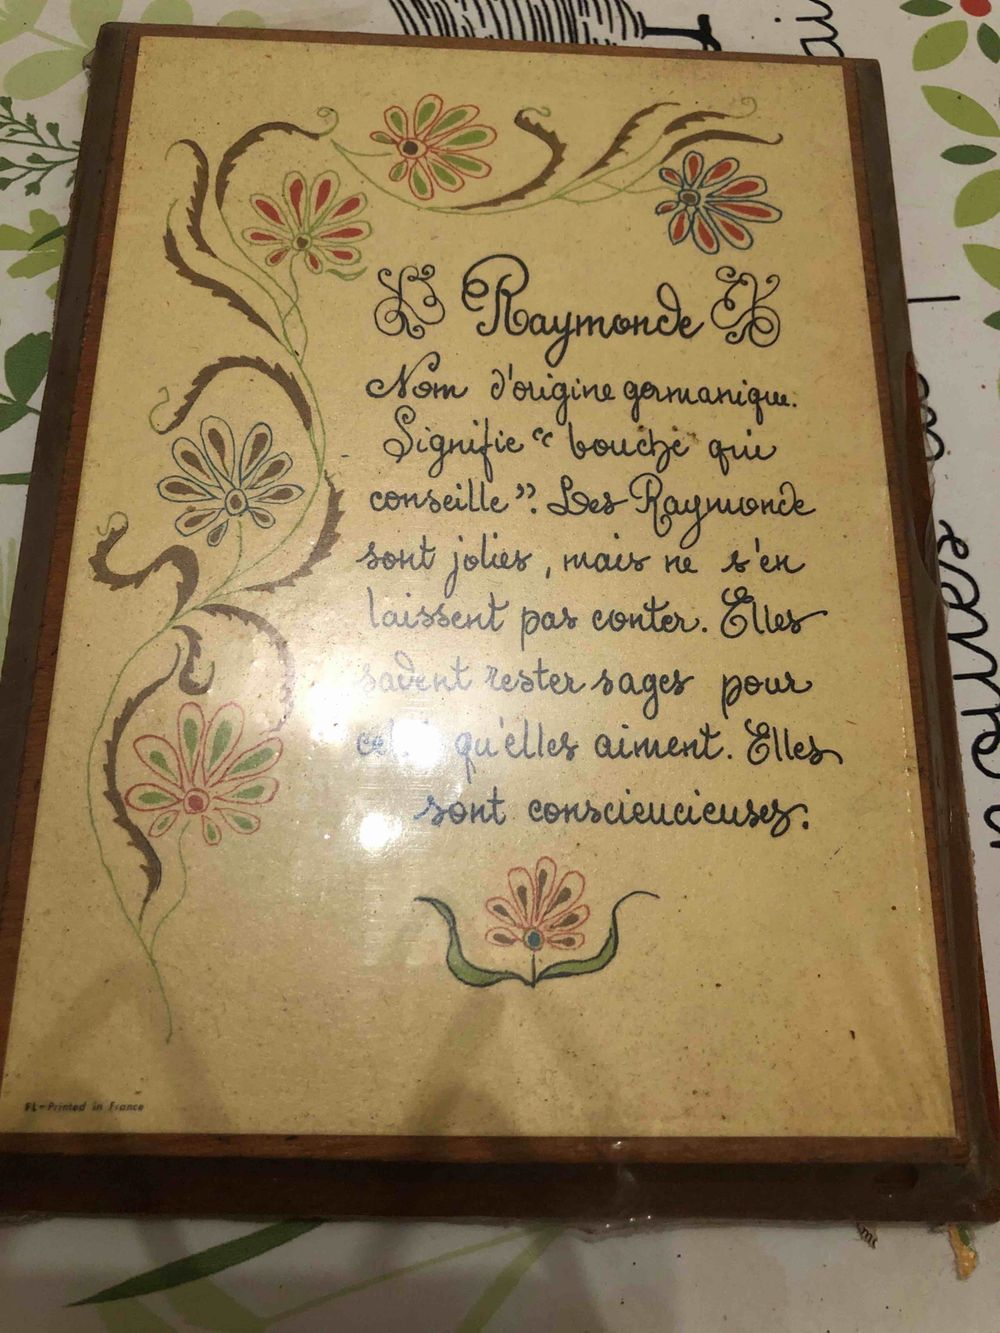 Raymonde
Nom d'origine germanique.
Signifie “ bouche qui
conseille ”. Les Raymonde
sont jolies, mais ne s'en
laissent pas conter. Elles
savent rester sages pour
qu'elles aiment. Elles
sont conscieucieuses.
FL - Printed in France